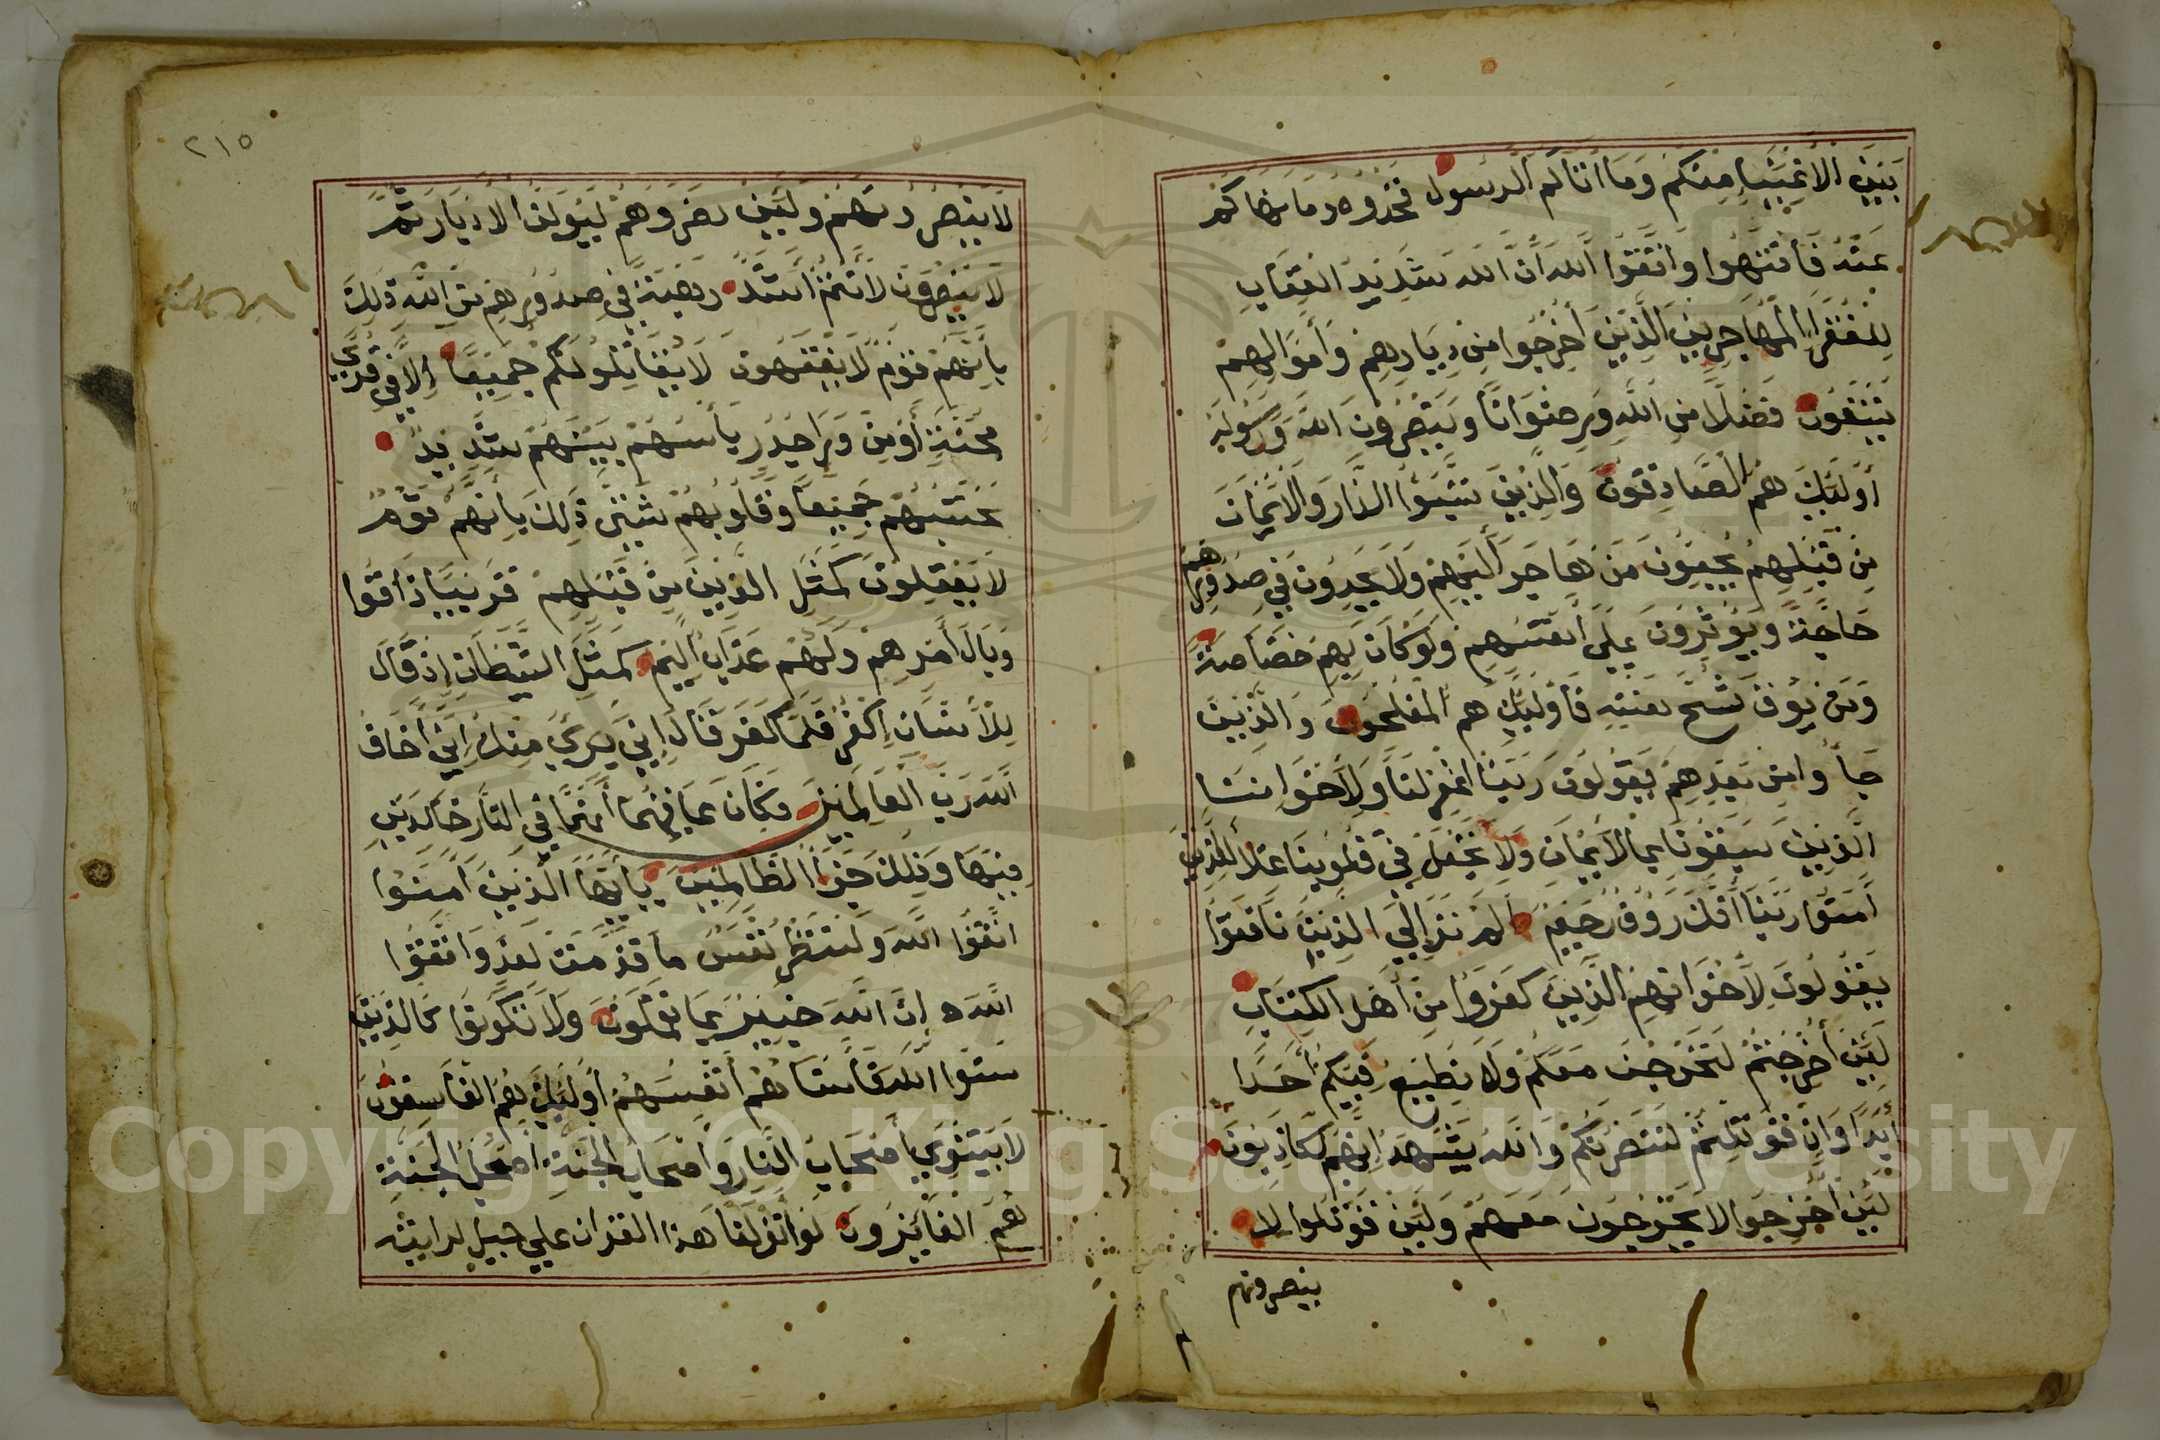 بَيْنَ الأَغْنِيَاءِ مِنْكُمْ وَمَا اتَاكُم الرَّسُولُ فَخُذُوهُ وَمَا نَهَاكُمْ
عَنْهُ فَانْتَهُوا وَاتَّقُوا اللهَ اِنَّ اللهَ شَدِيدُ العِقَابِ
لِلْفُقَرَاءِ المُهَاجِرِينَ الَّذِينَ أُخْرِجُوا مِنْ دِيَارِهِمْ وَأَمْوَالِهِمْ
يَبْتَغُونَ فَضْلًا مِنَ اللهِ وَرِضْوَانًا وَيَنْصُرُونَ اللهَ وَرَسُولَهُ
أُولَئِكَ هُمُ الصَّادِقُونَ وَالَّذِينَ تَبَوَّؤُا الدَّارَ وَالأِيمَانَ
مِنْ قَبْلِهِمْ يُحِبُّونَ مَنْ هَاجَرَ أَلَيْهِمْ وَلاَ يَجِدُونَ فِي صُدُورِهِمْ
حَاجَةً وَيُوثِرُونَ عَلَى أَنْفُسِهِمْ وَلَوْكَانَ بِهِمْ خَصَاصَةٌ
وَمَنْ يُوقَ شُحَّ نَفْسِهِ فَأُولَئِكَ هُم المُفْلِحُونَ وَالَّذِينَ
جَاُوا مِنْ بَعْدِهِمْ يَقُولُونَ رَبَّنَا اغْفِرْلَنَا وَلِأِخْوَانِنَا
الَّذِينَ سَبَقُونَا بِالأِيمَانِ وَلاَ تَجْعَلْ فِي قُلُوبِنَا غِلاًّ لِلَّذِينَ
آمَنُوا رَبَّنَا أَنَّكَ رَوُفٌ رَحِيمٌ اَلَمْ تَرَ إِلَيَ الَّذِينَ نَافَقُوا
يَقُولُونَ لِأِخْوَانِهِمُ الَّذِينَ كَفَرُوا مِنْ أَهْلِ الكِتَابِ
لَئِنْ أُخْرِجْتُمْ لَنَخْرُجَنَّ مَعَكُمْ وَلاَ نُطِيعُ فِيكُمْ أَحَدًا
أَبَدًا وَإِنْ قُوتِلْتُمْ لَنَنْصُرَنَّكُمْ وَاللهُ يَشْهَدُ اِنَّهُمْ لَكَاذِبُونَ
لَئِنْ أُخْرِجُوا لاَ يَخْرُجُونَ مَعَهُمْ وَلَئِنْ قُوتِلُوا لاَ
ينصرونهم
٢١٥
لاَ يَنْصُرُونَهُمْ وَلَئِنْ نصَرُوهُمْ لَيُوَلُّنَّ الأَدْبَارَ ثُمَّ
لاَ يُنْصَرُونَ لَأَنْتُمْ أَشَدُّ رَهْبَةً فِي صُدُورِهِمْ مِنَ اللهِ ذَلِكَ
بِأَنَّهُمْ قَوْمٌ لاَ يَفْقَهُونَ لاَ يُقَاتِلُونَكُمْ جَمِيعًا إِلاَّ فِي قُرًى
مُحَصَّنَةٍ أَوْ مِنْ وَرَاءِ جُدُرٍ بَأْسُهُمْ بَيْنَهُمْ شَدِيدٌ
تَحْسَبُهُمْ جَمِيعًا وَقُلُوبُهُمْ شَتَّى ذَلِكَ بِأَنَّهُمْ قَوْمٌ
لاَ يَعْقِلُونَ كَمَثَلِ الَّذِينَ مِنْ قَبْلِهِمْ قَرِيبًا ذَاقُوا
وَبَالَ أَمْرِهِمْ وَلَهُمْ عَذَابٌ أَلِيمٌ كَمَثَلِ الشَّيْطَانِ إِذْ قَالَ
لِلأِنْسَانِ اِكْفُرْ فَلَمَّا كَفَرَ قَالَ اِنِّي بَرِيٌ مِنْكَ اِنِّي أَخَافُ
اللهَ رَبَّ العَالَمِينَ وَكَانَ عَاقِبَتَهُمَا أَنَّهُمَا فِي النَّارِ خَالِدَيْنِ
فِيهَا وَذَلِكَ جَزَاُ الظَّالِمِينَ يَايُّهَا الَّذِينَ آمَنُوا
اتَّقُوا اللهَ وَلْتَنْظُرْ نَفْسٌ مَا قَدَّمَتْ لِغَدٍ وَاتَّقُوا
اللهَ إِنَّ اللهَ خَبِيرٌ بِمَا تَعْمَلُونَ وَلاَ تَكُونُوا كَالَّذِينَ
نَسُوا اللهَ فَأَنْسَاهُمْ أَنْفُسَهُمْ أُولَئِكَ هُمُ الفَاسِقُونَ
لاَ يَسْتَوِي أَصْحَابُ النَّارِ وَأَصْحَابُ الجَنَّةِ أَصْحَابُ الجَنَّةِ
هُمُ الفَائِزُونَ لَوْ انْزَلْنَا هَذَا القُرْانَ عَلَي جَبَلٍ لَرَايْتَهُ
Copyright © King Saud University
1957